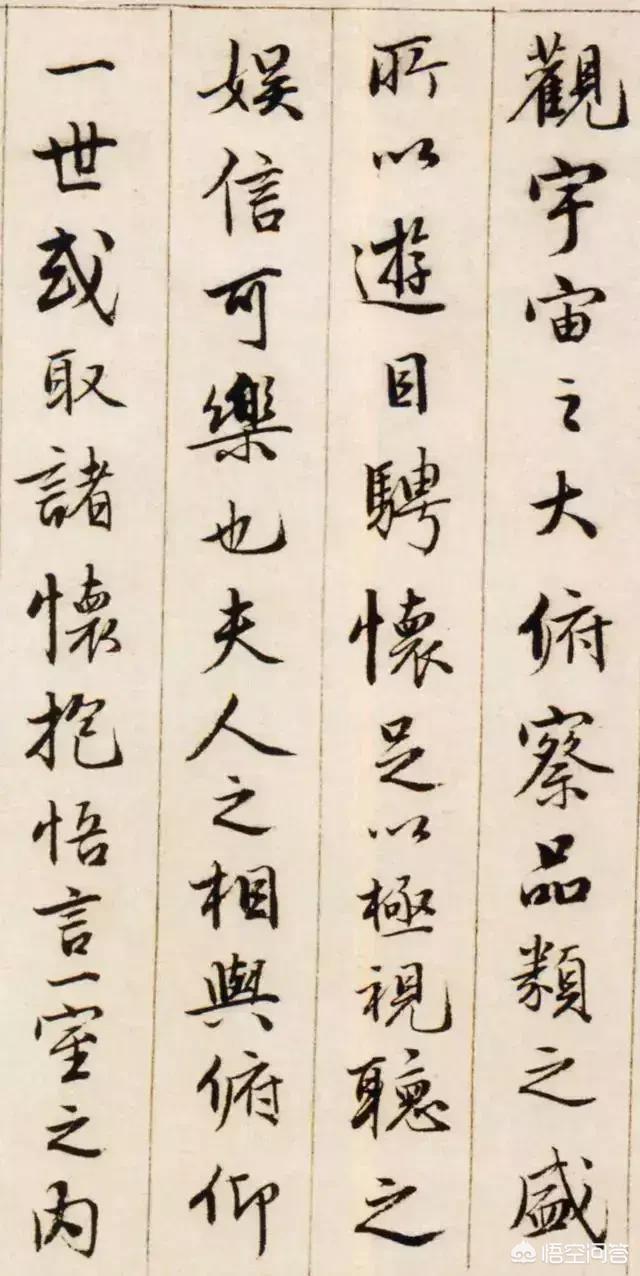 觀宇宙之大俯察品類之盛
所以遊目騁懷足以極視聽之
娱信可樂也夫人之相與俯仰
一世或取諸懷抱悟言一室之内
悟空问答